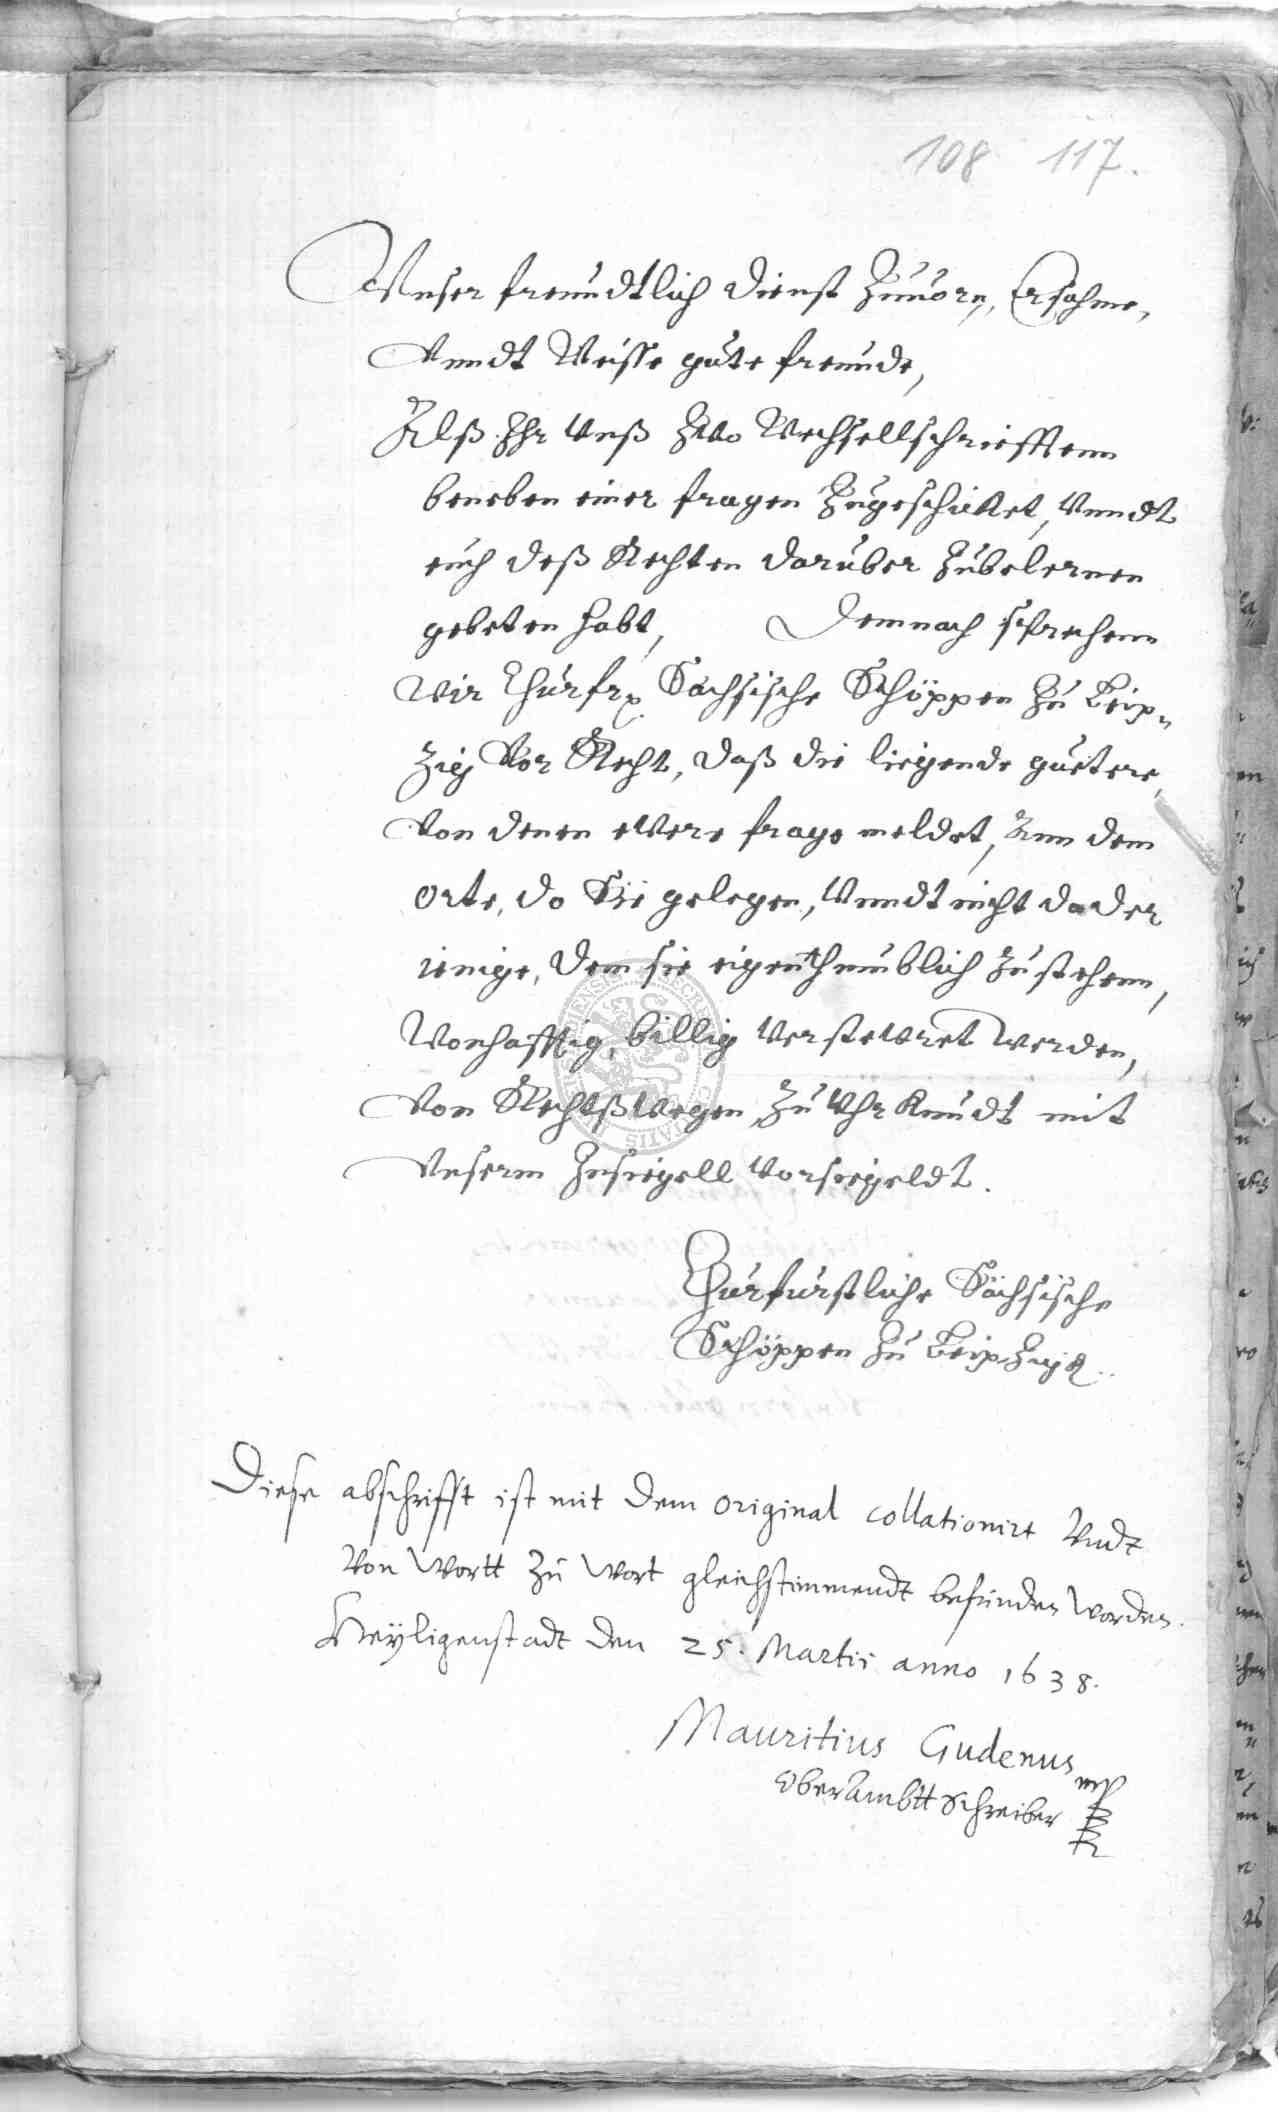 108 117.
Vnser freundtlich dienst Zuuorn, Ersahme,
Vnndt Weisse gute freunde,
Alß Ihr Vnß Zwo Wechsellschriefftenn
beneben einer fragen Zugeschicket, Vnndt
euch deß Rechten daruber Zubelernen
gebeten habt, Demnach sprechenn
Wir Churfr. Sächsische Schöppen Zu Leip-
zig Vor Recht, daß die liegende guetere,
Von denen ewere frage meldet, Ann dem
Orte, do Sie gelegen, Vnndt nicht da der
ienige, dem sie eigenthumblich Zustehenn,
Wonhafftig, billig Versteuret werden,
Von Rechtßwegen, Zu Vhrkundt mit
Vnserm Insiegell Vorsiegeldt.
Churfurstliche Sächsische
Schöppen Zu Leipzigk.
Diese abschrifft ist mit dem original collationirt Vndt
Von Wortt Zu Wort gleichstimmendt befunden worden.
Heyligenstadt den 25. Martii anno 1638.
Mauritius Gudenus
OberAmbtt Schreiber mp